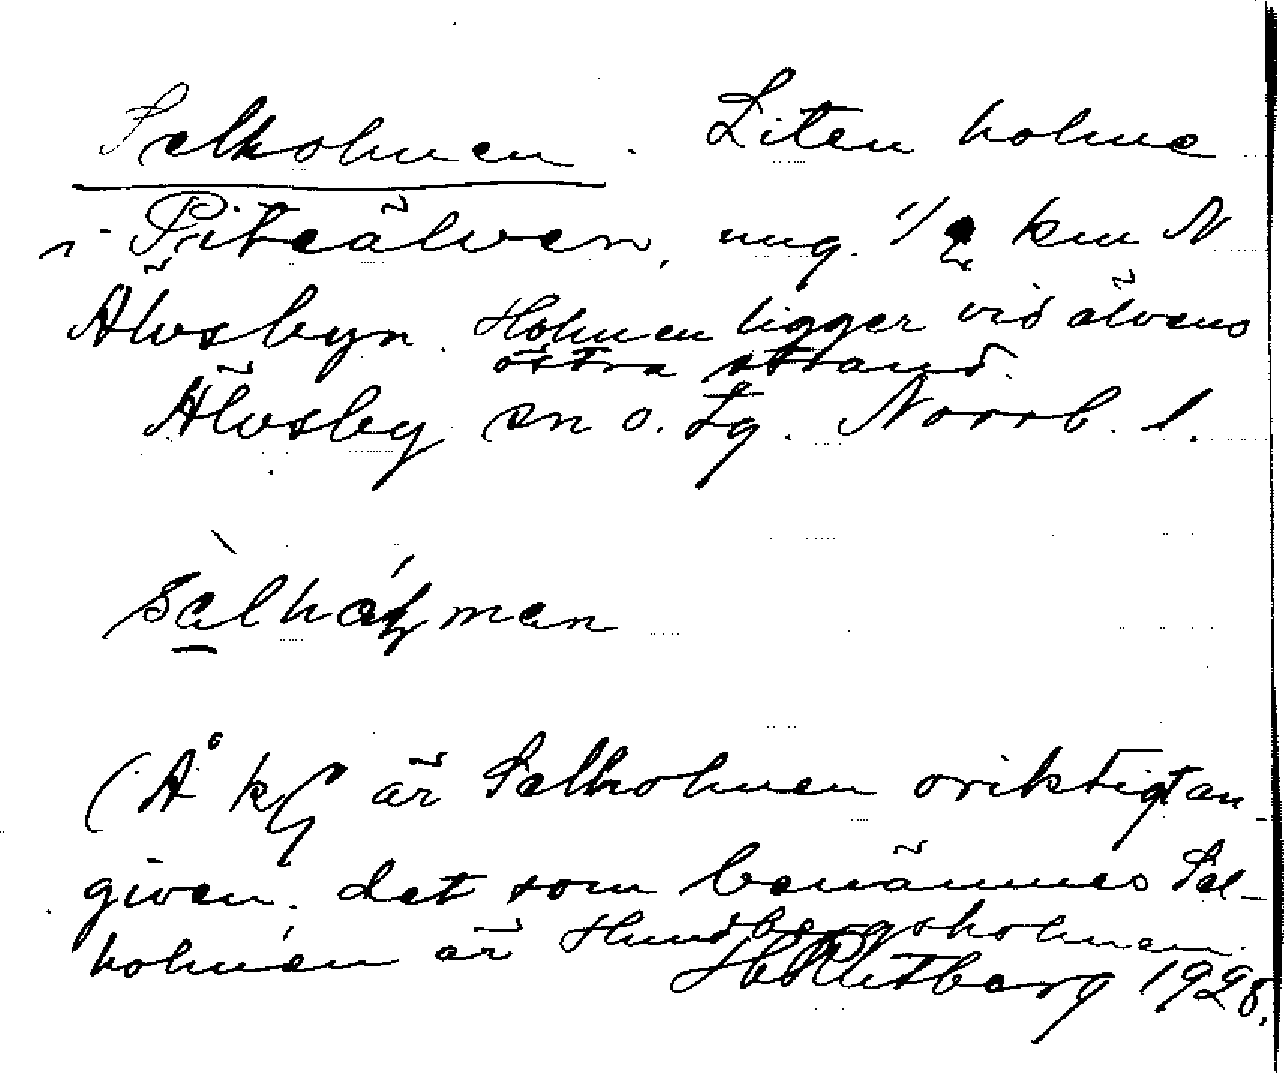 Selholmen. Liten holme
i Piteälven, ung. 1/2 km N
Älvsbyn. Holmen ligger vid älvens
östra strand.
Älvsby sn o. tg. Norrb. l.
(Å kg är Selholmen oriktigt an-
given. det som benämnes Sel-
holmen är Hundbergsholmen.
H Rutberg 1928.